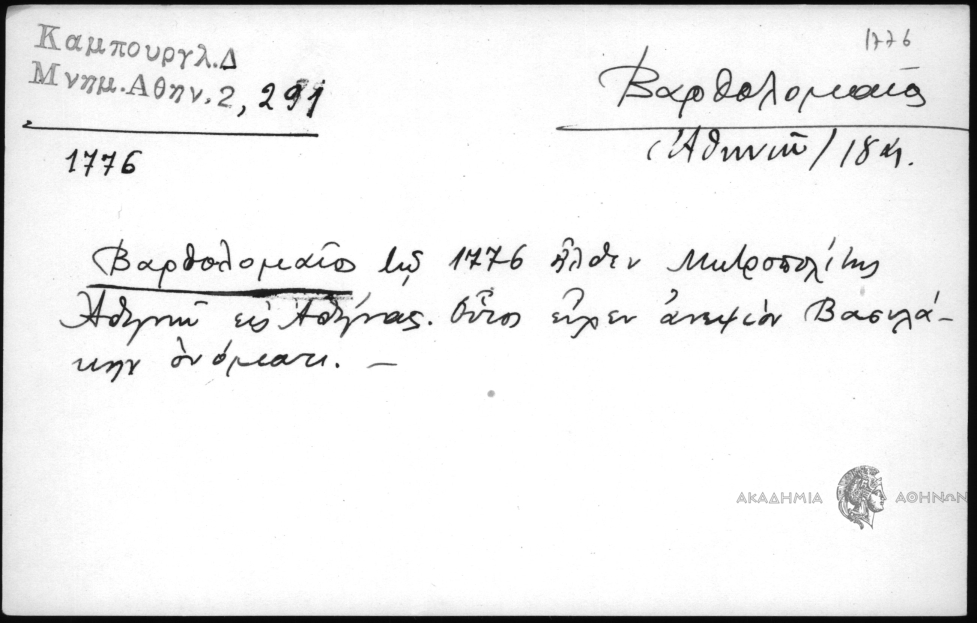 Καμπουργλ.Δ
Μνημ.Αθην.2, 291
1776
1776
Βαρθολομαῖος
Ἀθηνῶν / 18 αι.
Βαρθολομαῖος τῷ 1776 ἦλθεν Μητροπολίτης
Ἀθηνῶν εἰς Ἀθήνας. Οὗτος εἶχεν ἀνεψιὸν Βασιλά-
κην ὀνόματι. —
ΑΚΑΔΗΜΙΑ ΑΘΗΝΩΝ